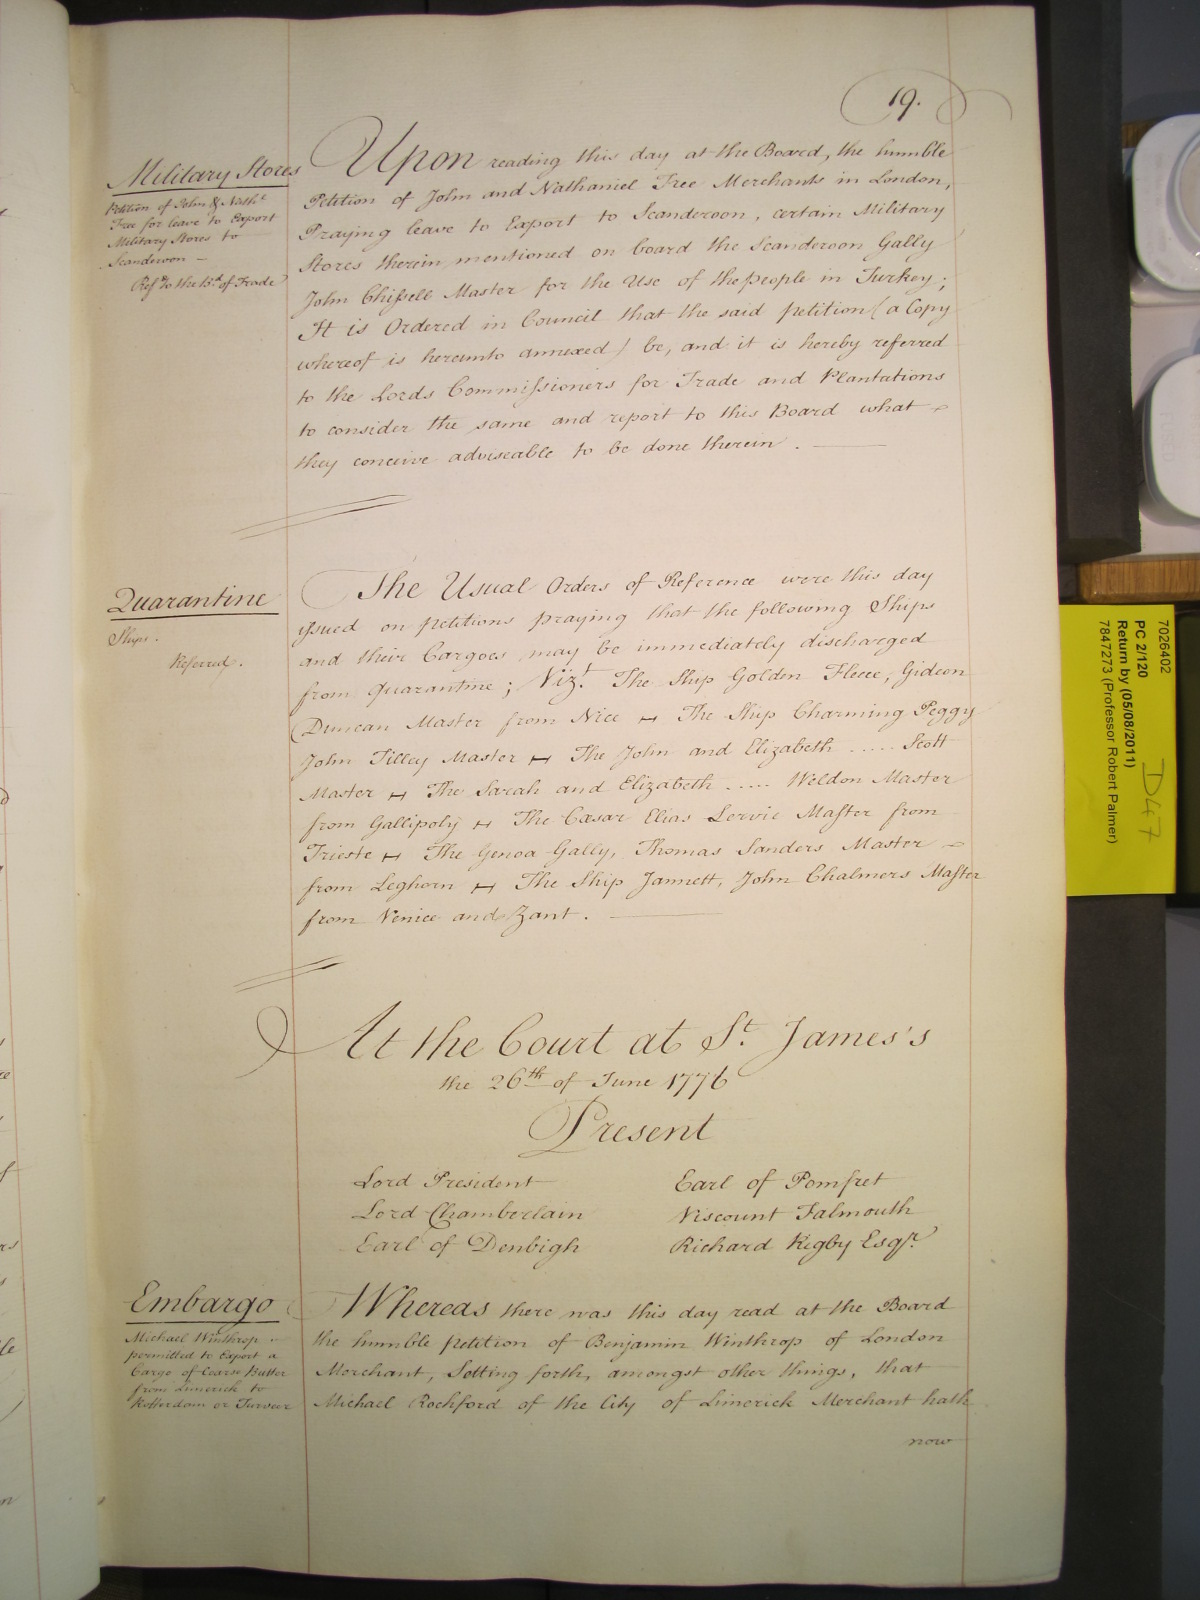 19.
Military Stores
Petition of John & Nath.l
Tree for leave to Export
Military Stores to
Scanderoon –
Ref.d to the B.d of Trade
Upon reading this day at the Board, the humble
Petition of John and Nathaniel Tree Merchants in London,
Praying leave to Export to Scanderoon, certain Military
Stores therein mentioned on board the Scanderoon Gally
John Chissell Master for the Use of the people in Turkey;
It is Ordered in Council that the said petition (a Copy
whereof is hereunto annexed) be, and it is hereby referred
to the Lords Commissioners for Trade and Plantations
to consider the same and report to this Board what
they conceive adviseable to be done therein.
Quarantine
Ships.
Referred.
The Usual Orders of Reference were this day
issued on petitions praying that the following Ships
and their Cargoes may be immediately discharged
from Quarantine; Viz.t The Ship Golden Fleece, Gideon
Duncan Master from Nice – The Ship Charming Peggy
John Tilley Master – The John and Elizabeth ..... Scott
Master – The Sarah and Elizabeth ..... Weldon Master
from Gallipoly – The Cæsar Elias Lervie Master from
Trieste – The Genoa Gally, Thomas Sanders Master
from Leghorn – The Ship Jannett, John Chalmers Master
from Venice and Zant.
At the Court at St. James's
the 26th of June 1776
Present
Lord President
Lord Chamberlain
Earl of Denbigh
Earl of Pomfret
Viscount Falmouth
Richard Rigby Esqr.
Embargo
Michael Winthrop
permitted to Export a
Cargo of Coarse Butter
from Limerick to
Rotterdam or Turveer
Whereas there was this day read at the Board
the humble petition of Benjamin Winthrop of London
Merchant, Setting forth, amongst other things, that
Michael Rochford of the City of Limerick Merchant hath
now
7026402
PC 2/120
Return by (05/08/2011)
7847273 (Professor Robert Palmer)
D47